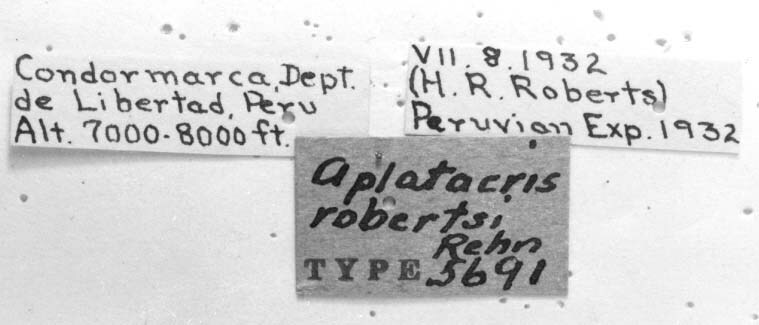 Condormarca, Dept.
de Libertad, Peru
Alt. 7000-8000 ft.
VII. 8. 1932
(H. R. Roberts)
Peruvian Exp. 1932
Aplatacris
robertsi
Rehn
TYPE 5691